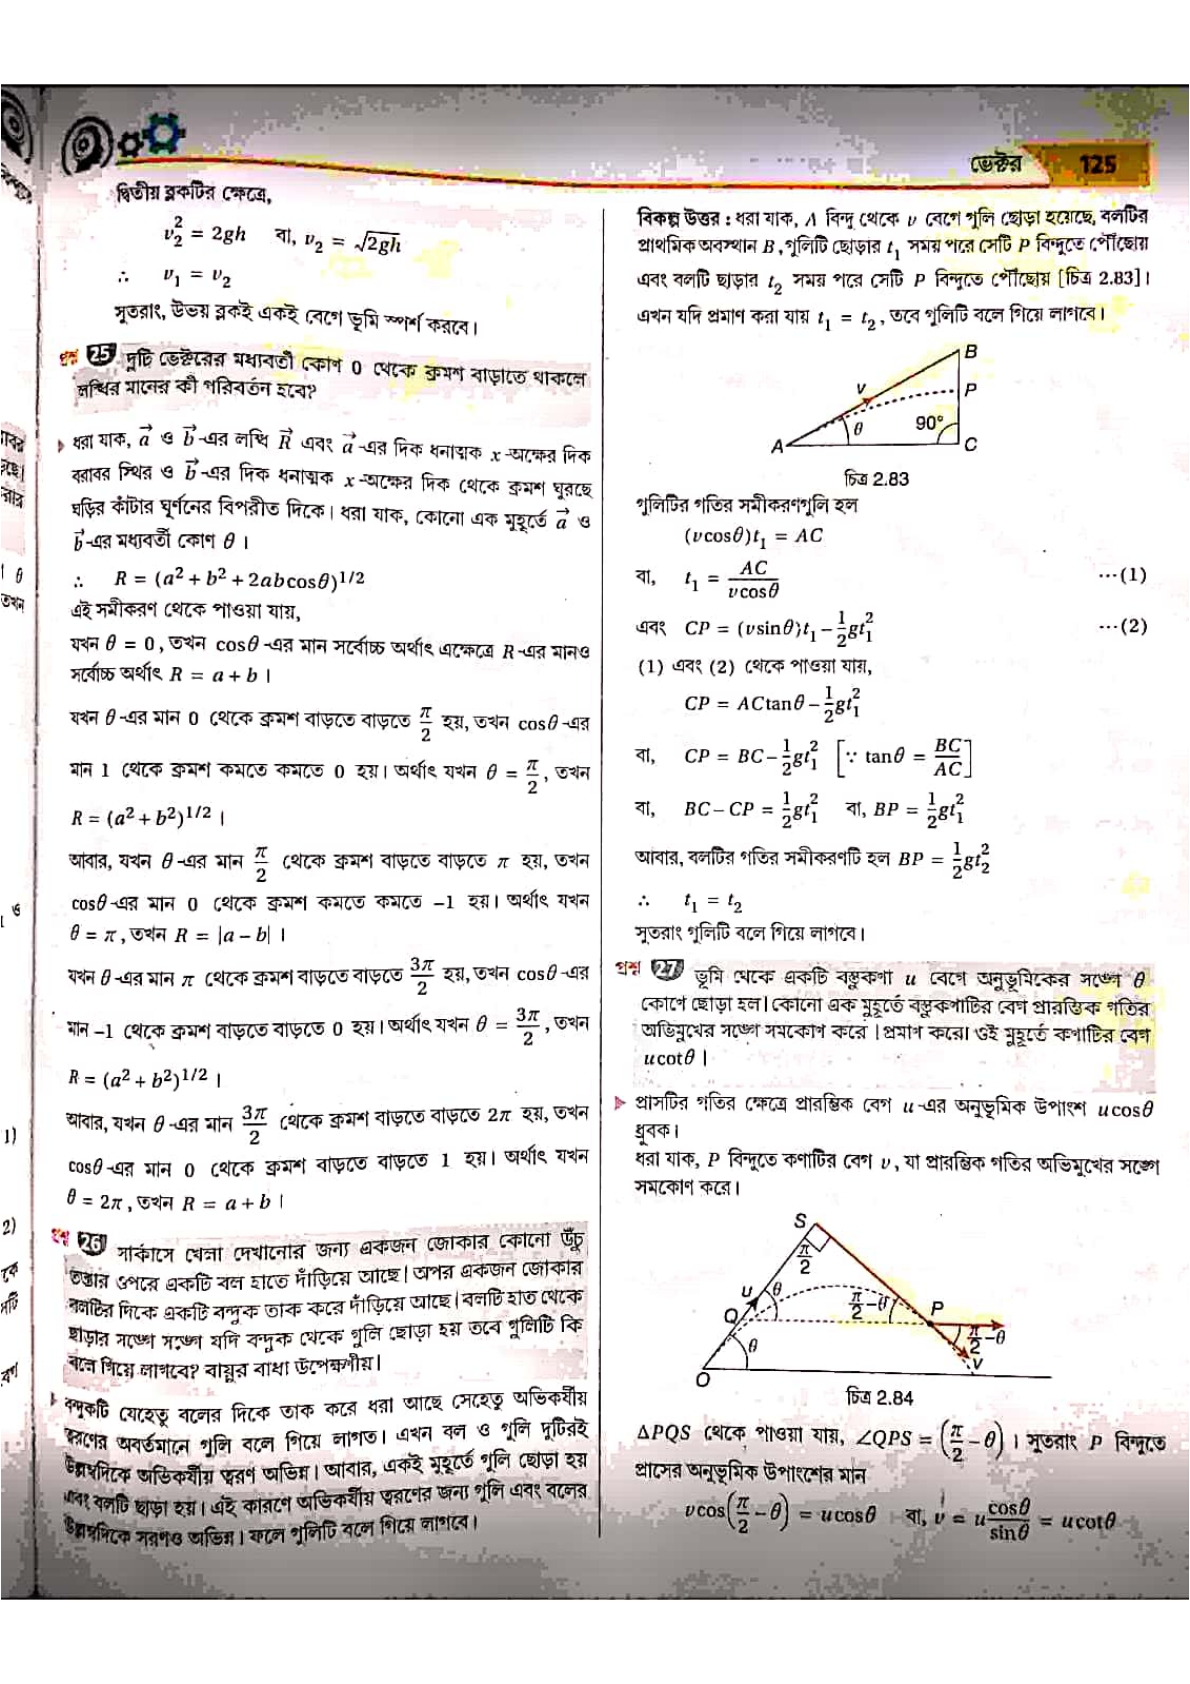 ভেক্টর 125
দ্বিতীয় ব্লকটির ক্ষেত্রে,
v₂² = 2gh বা, v₂ = √2gh
∴ v₁ = v₂
সুতরাং, উভয় ব্লকই একই বেগে ভূমি স্পর্শ করবে।
প্রশ্ন 25 দুটি ভেক্টরের মধ্যবর্তী কোণ 0 থেকে ক্রমশ বাড়াতে থাকলে
লব্ধির মানের কী পরিবর্তন হবে?
ধরা যাক, a⃗ ও b⃗-এর লব্ধি R⃗ এবং a⃗-এর দিক ধনাত্মক x-অক্ষের দিক
বরাবর স্থির ও b⃗-এর দিক ধনাত্মক x-অক্ষের দিক থেকে ক্রমশ ঘুরছে
ঘড়ির কাঁটার ঘূর্ণনের বিপরীত দিকে। ধরা যাক, কোনো এক মুহূর্তে a⃗ ও
b⃗-এর মধ্যবর্তী কোণ θ ।
∴ R = (a² + b² + 2ab cosθ)^1/2
এই সমীকরণ থেকে পাওয়া যায়,
যখন θ = 0, তখন cosθ-এর মান সর্বোচ্চ অর্থাৎ এক্ষেত্রে R-এর মানও
সর্বোচ্চ অর্থাৎ R = a + b ।
যখন θ-এর মান 0 থেকে ক্রমশ বাড়তে বাড়তে π/2 হয়, তখন cosθ-এর
মান 1 থেকে ক্রমশ কমতে কমতে 0 হয়। অর্থাৎ যখন θ = π/2, তখন
R = (a² + b²)^1/2 ।
আবার, যখন θ-এর মান π/2 থেকে ক্রমশ বাড়তে বাড়তে π হয়, তখন
cosθ-এর মান 0 থেকে ক্রমশ কমতে কমতে –1 হয়। অর্থাৎ যখন
θ = π, তখন R = |a – b| ।
যখন θ-এর মান π থেকে ক্রমশ বাড়তে বাড়তে 3π/2 হয়, তখন cosθ-এর
মান –1 থেকে ক্রমশ বাড়তে বাড়তে 0 হয়। অর্থাৎ যখন θ = 3π/2, তখন
R = (a² + b²)^1/2 ।
আবার, যখন θ-এর মান 3π/2 থেকে ক্রমশ বাড়তে বাড়তে 2π হয়, তখন
cosθ-এর মান 0 থেকে ক্রমশ বাড়তে বাড়তে 1 হয়। অর্থাৎ যখন
θ = 2π, তখন R = a + b ।
প্রশ্ন 26 সার্কাসে খেলা দেখানোর জন্য একজন জোকার কোনো উঁচু
তক্তার ওপরে একটি বল হাতে দাঁড়িয়ে আছে। অপর একজন জোকার
বলটির দিকে একটি বন্দুক তাক করে দাঁড়িয়ে আছে। বলটি হাত থেকে
ছাড়ার সঙ্গে সঙ্গে যদি বন্দুক থেকে গুলি ছোড়া হয় তবে গুলিটি কি
বলে গিয়ে লাগবে? বায়ুর বাধা উপেক্ষণীয়।
বন্দুকটি যেহেতু বলের দিকে তাক করে ধরা আছে সেহেতু অভিকর্ষীয়
ত্বরণের অবর্তমানে গুলি বলে গিয়ে লাগত। এখন বল ও গুলি দুটিরই
উল্লম্বদিকে অভিকর্ষীয় ত্বরণ অভিন্ন। আবার, একই মুহূর্তে গুলি ছোড়া হয়
এবং বলটি ছাড়া হয়। এই কারণে অভিকর্ষীয় ত্বরণের জন্য গুলি এবং বলের
উল্লম্বদিকে সরণও অভিন্ন। ফলে গুলিটি বলে গিয়ে লাগবে।
বিকল্প উত্তর : ধরা যাক, A বিন্দু থেকে v বেগে গুলি ছোড়া হয়েছে, বলটির
প্রাথমিক অবস্থান B, গুলিটি ছোড়ার t₁ সময় পরে সেটি P বিন্দুতে পৌঁছোয়
এবং বলটি ছাড়ার t₂ সময় পরে সেটি P বিন্দুতে পৌঁছোয় [চিত্র 2.83]।
এখন যদি প্রমাণ করা যায় t₁ = t₂, তবে গুলিটি বলে গিয়ে লাগবে।
B
v P
θ 90°
A C
চিত্র 2.83
গুলিটির গতির সমীকরণগুলি হল
(v cosθ)t₁ = AC
বা, t₁ = AC/v cosθ ···(1)
এবং CP = (v sinθ)t₁ – 1/2 gt₁² ···(2)
(1) এবং (2) থেকে পাওয়া যায়,
CP = AC tanθ – 1/2 gt₁²
বা, CP = BC – 1/2 gt₁² [∵ tanθ = BC/AC]
বা, BC – CP = 1/2 gt₁² বা, BP = 1/2 gt₁²
আবার, বলটির গতির সমীকরণটি হল BP = 1/2 gt₂²
∴ t₁ = t₂
সুতরাং গুলিটি বলে গিয়ে লাগবে।
প্রশ্ন 27 ভূমি থেকে একটি বস্তুকণা u বেগে অনুভূমিকের সঙ্গে θ
কোণে ছোড়া হল। কোনো এক মুহূর্তে বস্তুকণাটির বেগ প্রারম্ভিক গতির
অভিমুখের সঙ্গে সমকোণ করে। প্রমাণ করো ওই মুহূর্তে কণাটির বেগ
u cotθ ।
প্রাসটির গতির ক্ষেত্রে প্রারম্ভিক বেগ u-এর অনুভূমিক উপাংশ u cosθ
ধ্রুবক।
ধরা যাক, P বিন্দুতে কণাটির বেগ v, যা প্রারম্ভিক গতির অভিমুখের সঙ্গে
সমকোণ করে।
S
π/2
u θ π/2 – θ P
Q π/2 – θ
θ v
O
চিত্র 2.84
ΔPQS থেকে পাওয়া যায়, ∠QPS = (π/2 – θ) । সুতরাং P বিন্দুতে
প্রাসের অনুভূমিক উপাংশের মান
v cos(π/2 – θ) = u cosθ বা, v = u cosθ/sinθ = u cotθ